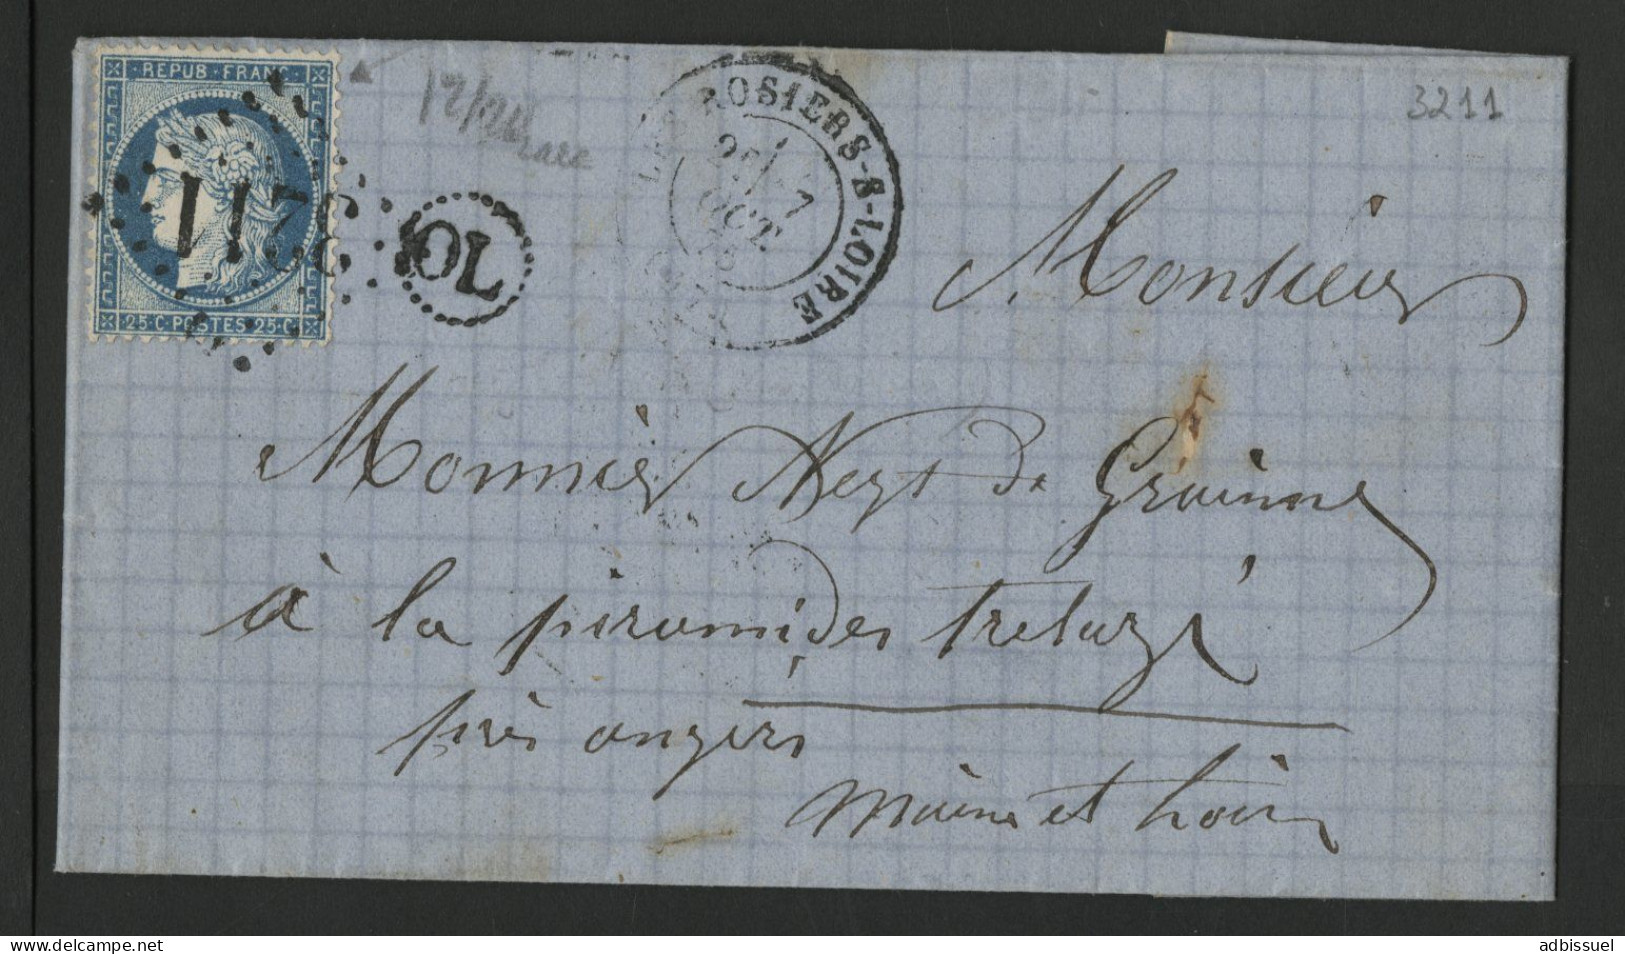 REPUB · FRANC ·
25·C POSTES 25·C
3211
OL
LES ROSIERS-S-LOIRE
OCT
3211
Monsieur
Monnier Negt de Graines
à la piramides trelazé
près angers
Maine et Loire
delcampe.net
adbissuel